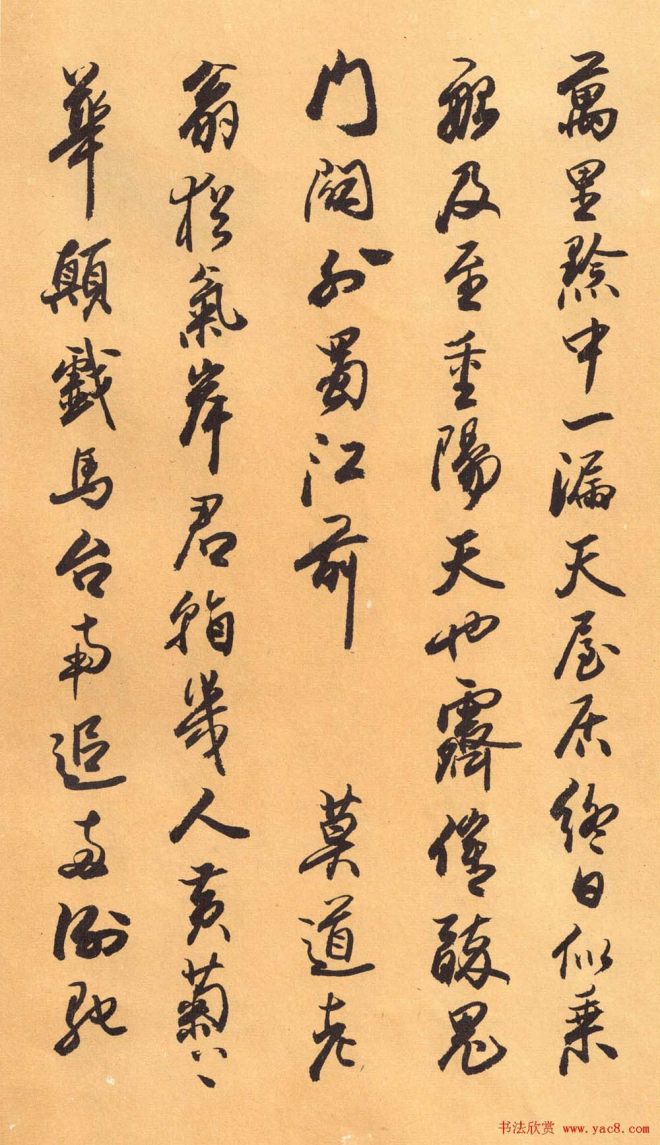 萬里黔中一漏天屋居終日似乘
船及至重陽天也霽催醉鬼
門關外蜀江前 莫道老
翁猶氣岸君看幾人黄菊上
華顛戲馬台南追两謝馳
书法欣赏 www.yac8.com